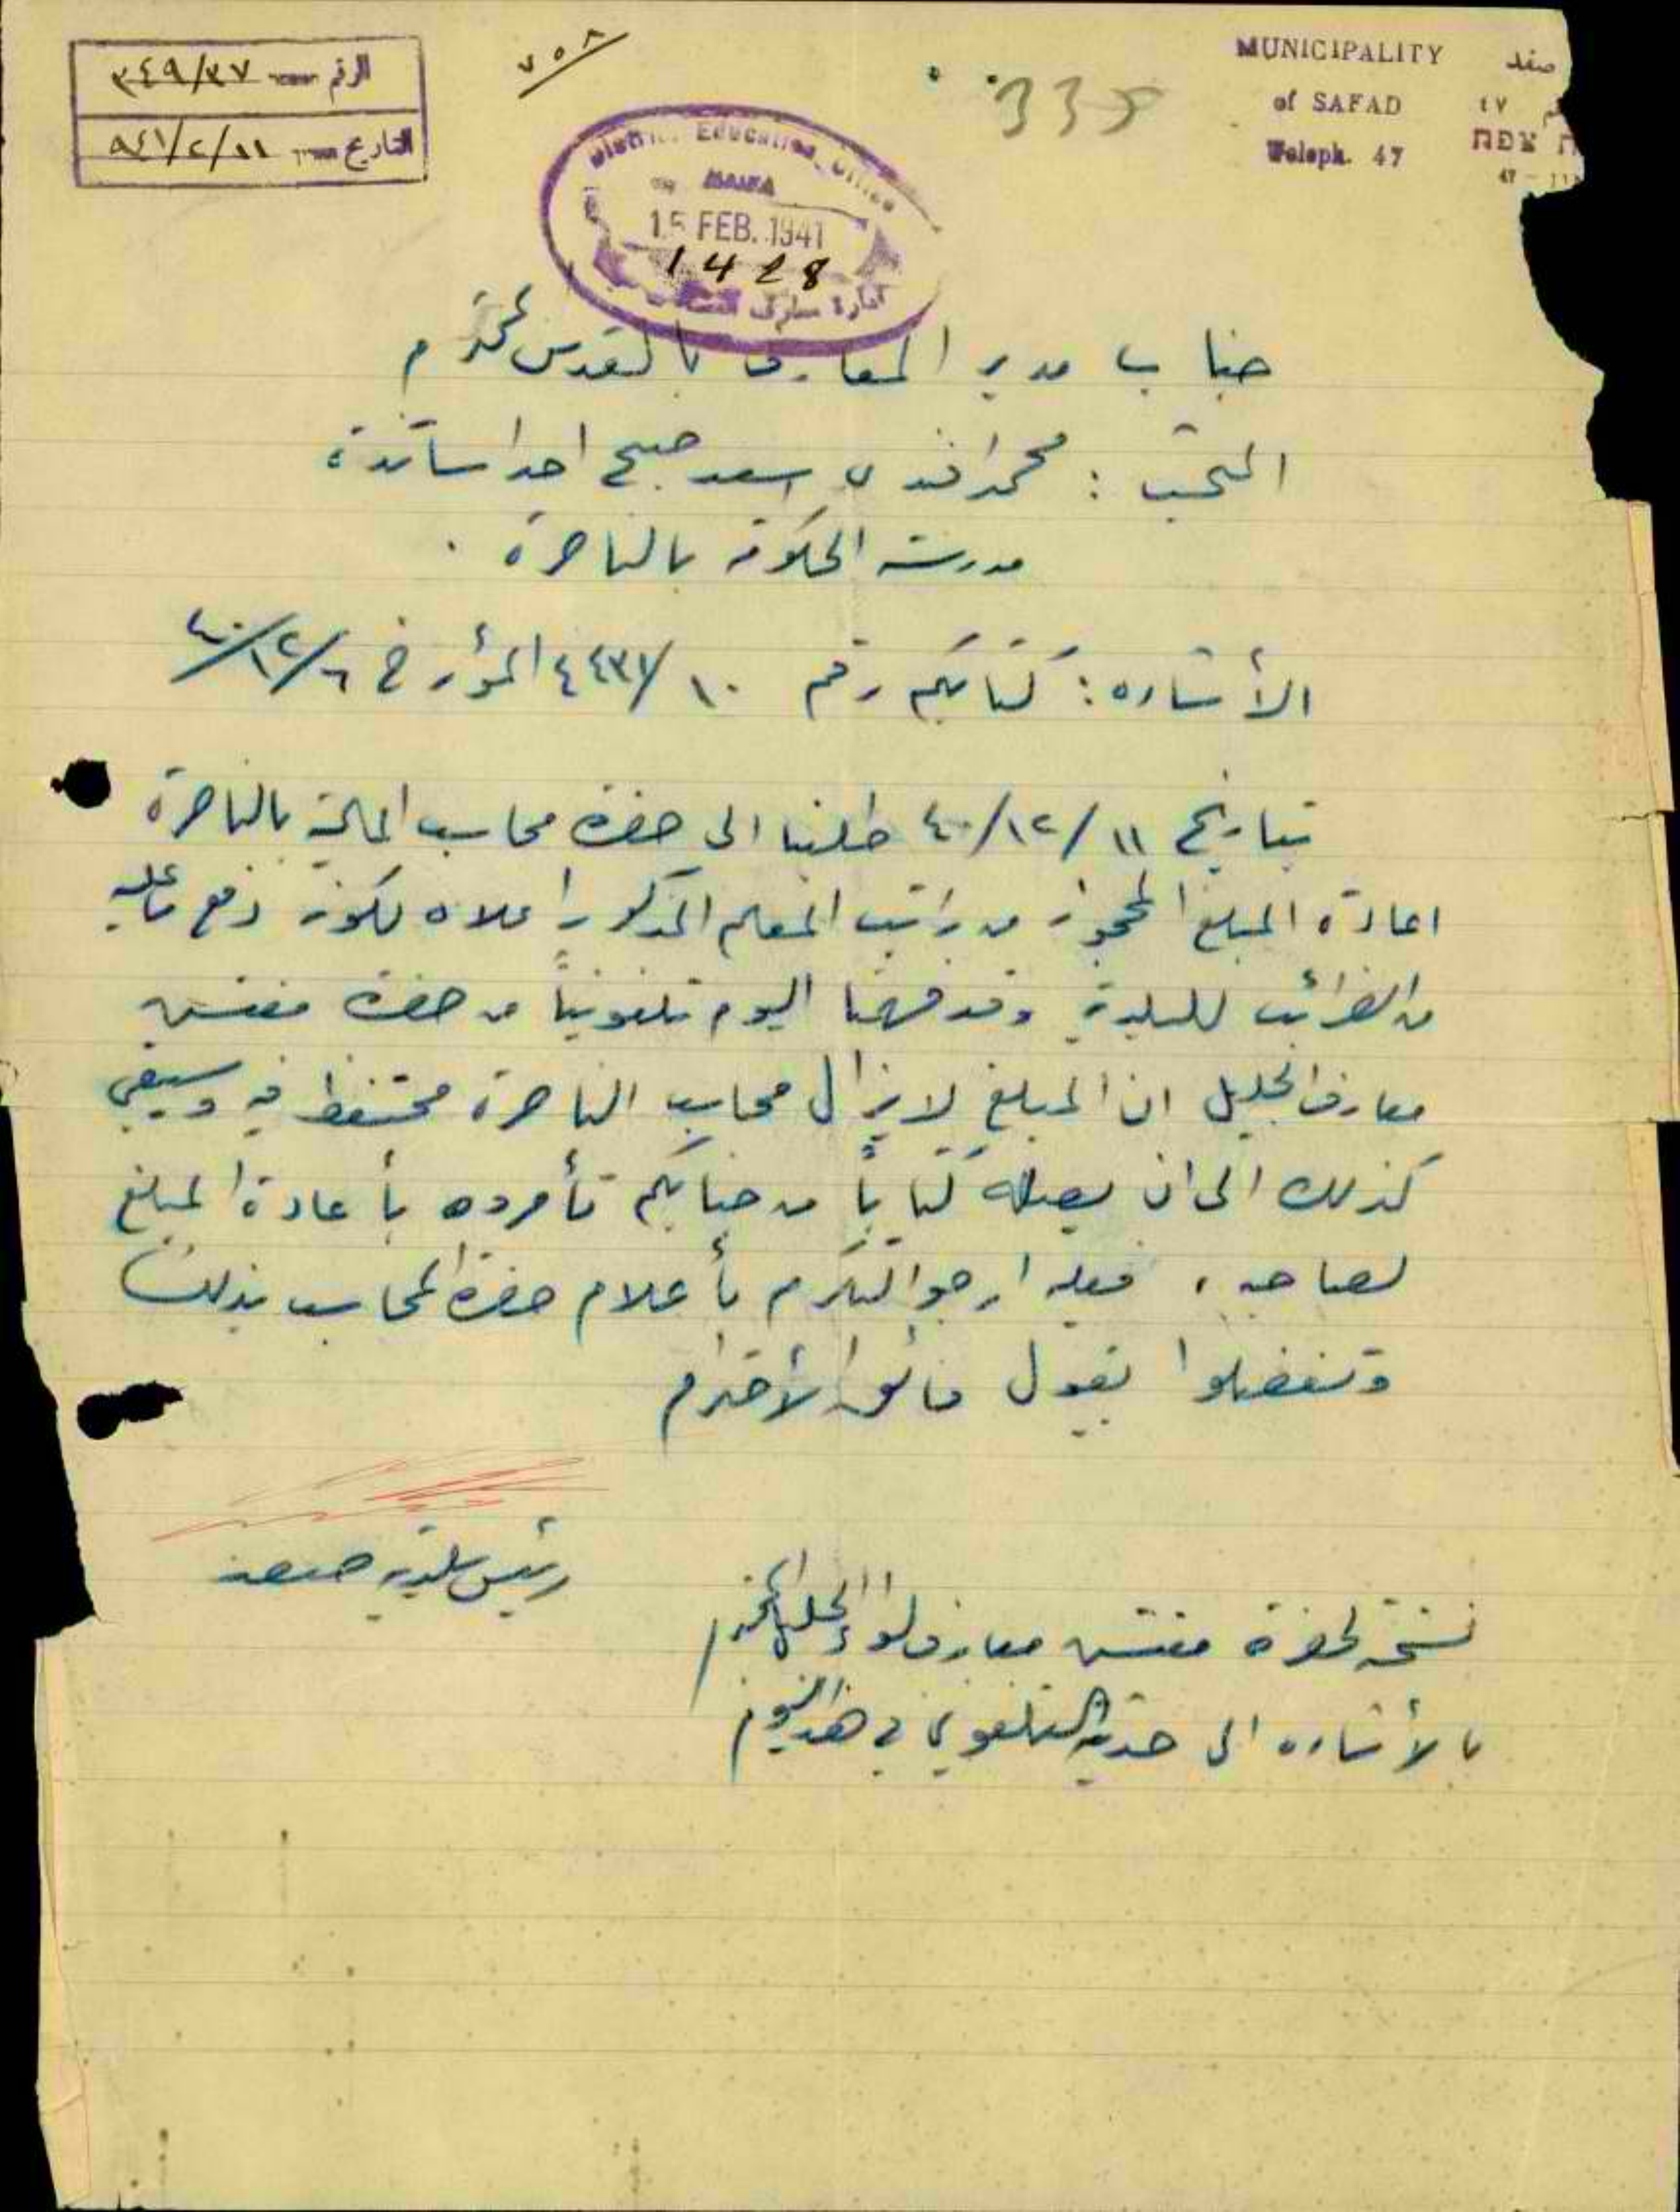 MUNICIPALITY
of SAFAD
Teleph. 47
صفد
٤٧
צפת
47
الرقم ٣٤٩/٣٧
التاريخ ٩٤١/٢/١١
٧٥٨
335
District Education Office
HAIFA
15 FEB. 1941
1428
ادارة معارف
جناب مدير المعارف بالقدس المحترم
: محمد افندي اسعد صبح احد اساتذة
مدرسة الحكومة بالناصرة .
الأشاره : كتابكم رقم ١٠/٤٤٣٧ المؤرخ ٤٠/١٢/٦
بتاريخ ٤٠/١٢/١١ طلبنا الى حضرة محاسب المالية بالناصرة
اعادة المبلغ المحجوز من راتب المعلم المذكور اعلاه لكونه دفع ما عليه
من الضرائب للبلدية وقد فهمنا اليوم تلفونياً من حضرة مفتش
معارف الجليل ان المبلغ لا يزال محاسب الناصرة محتفظ فيه وسيبقى
كذلك الى ان يصله كتاباً من جنابكم تأمروه بأعادة المبلغ
لصاحبه ، فعليه ارجو التكرم بأعلام حضرة المحاسب بذلك
وتفضلوا بقبول فائق الأحترام
رئيس بلدية صفد
نسخة لحضرة مفتش معارف لواء الجليل المحترم
بالأشاره الى حديثه التلفوني في هذا اليوم